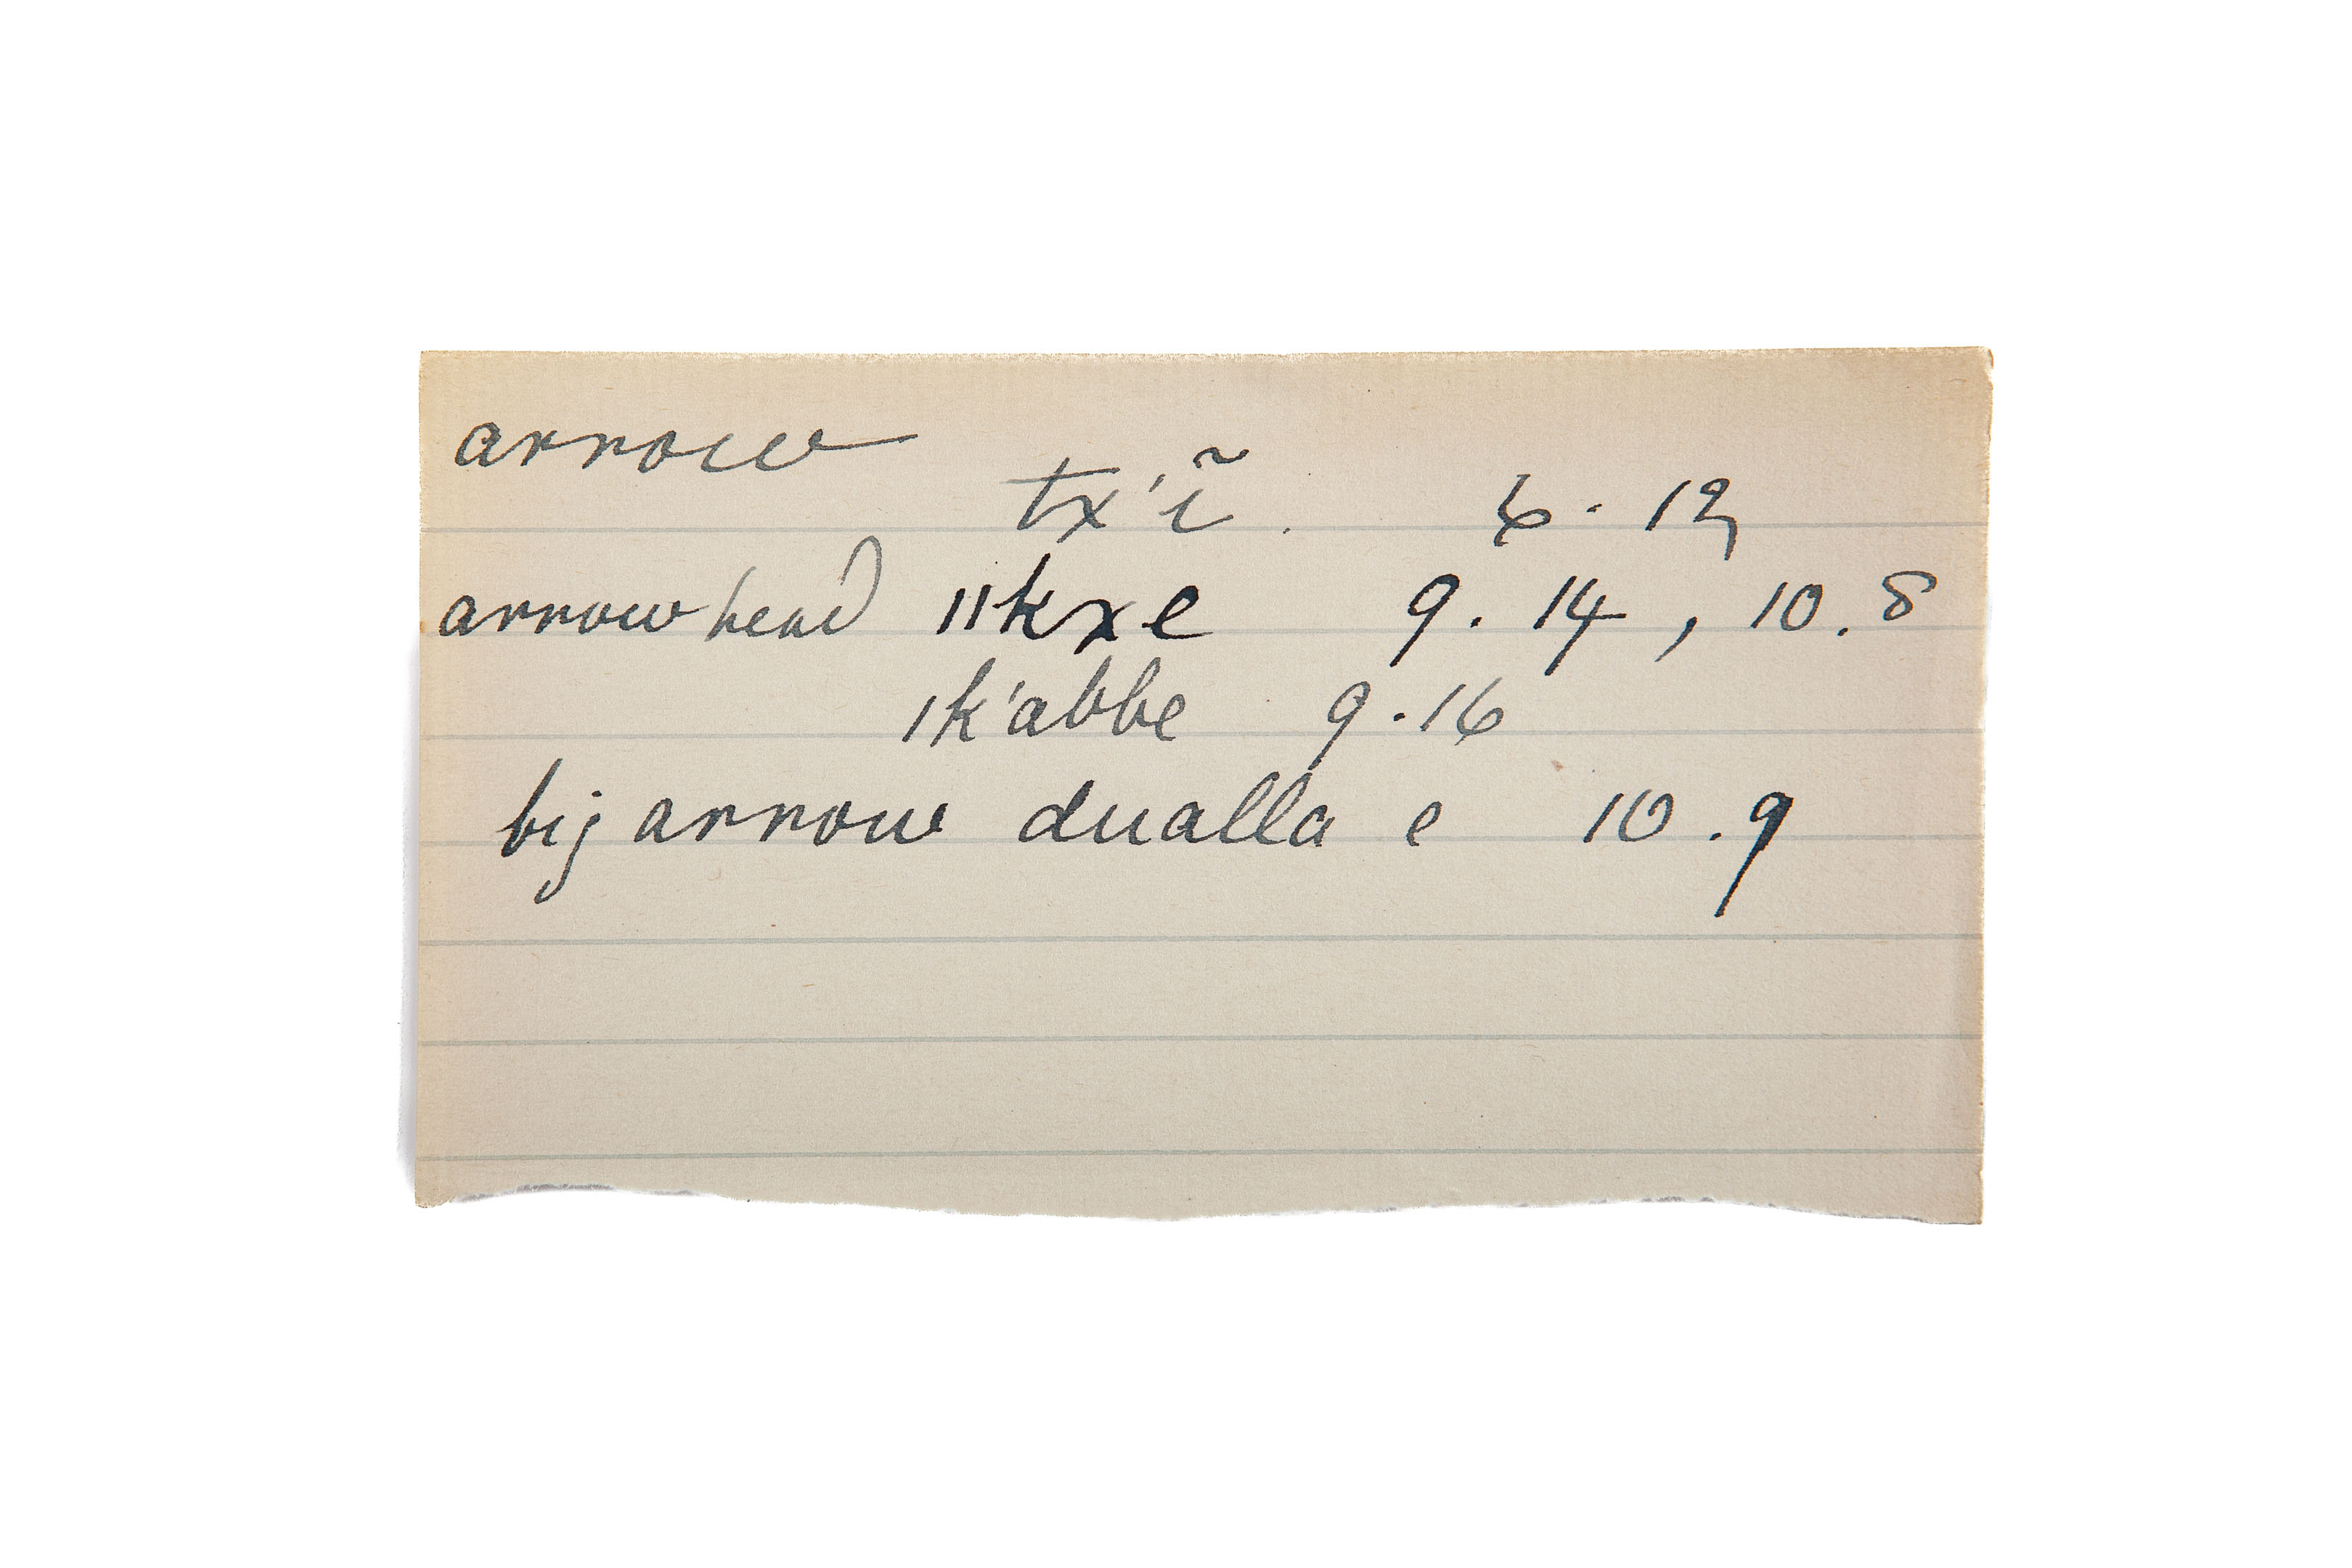 arrow
tx'ĩ . 6 . 12
arrow head ǁkxe 9 . 14 , 10 . 8
ǀk'abbe 9 . 16
big arrow dualla e 10 . 9